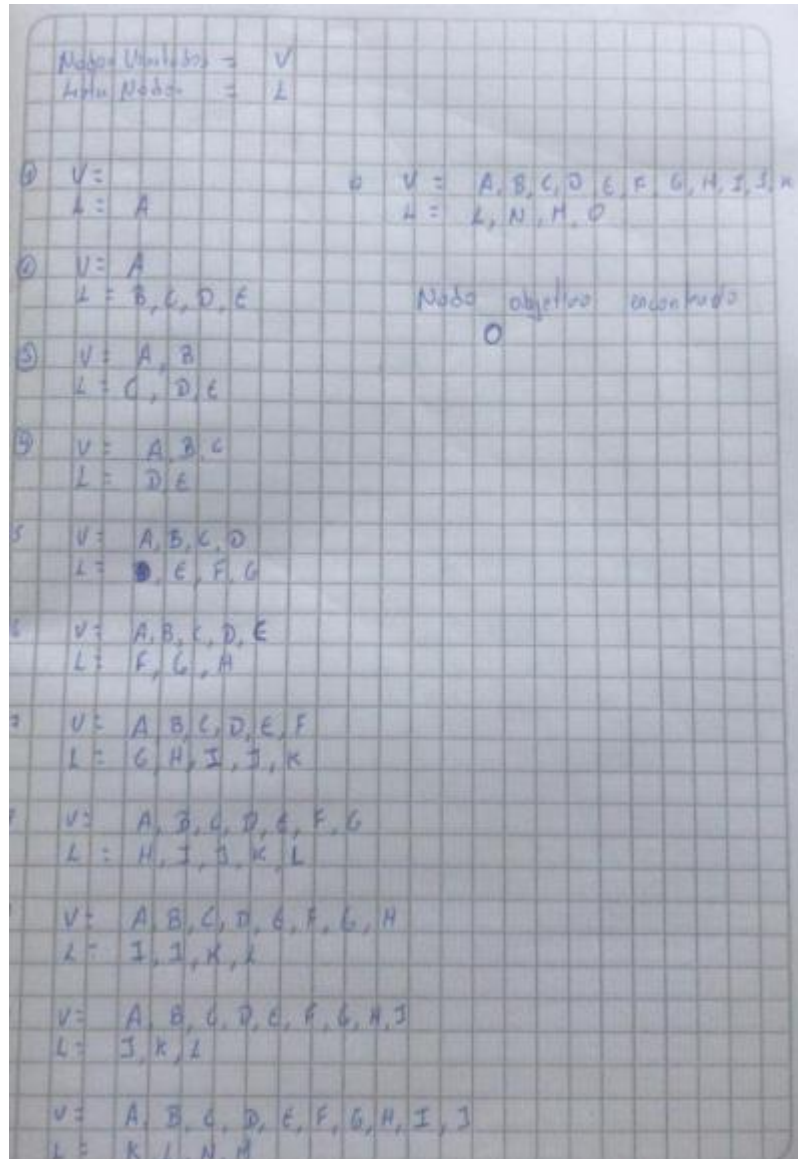 Nodos Visitados = V
Lista Nodos = L
① V =
L = A
② V = A
L = B, C, D, E
③ V = A, B
L = C, D, E
④ V = A B C
L = D E
5 V = A, B, C, D
L = E, F, G
6 V = A, B, C, D, E
L = F, G, H
7 V = A B C, D, E, F
L = G, H, I, J, K
V = A, B, C, D, E, F, G
L = H, I, J, K, L
V = A, B, C, D, E, F, G, H
L = I, J, K, L
V = A, B, C, D, E, F, G, H, I
L = J, K, L
V = A, B, C, D, E, F, G, H, I, J
L = K, L, N, M
V = A, B, C, D, E, F, G, H, I, J, K
L = L, N, M, O
Nodo objetivo encontrado
O